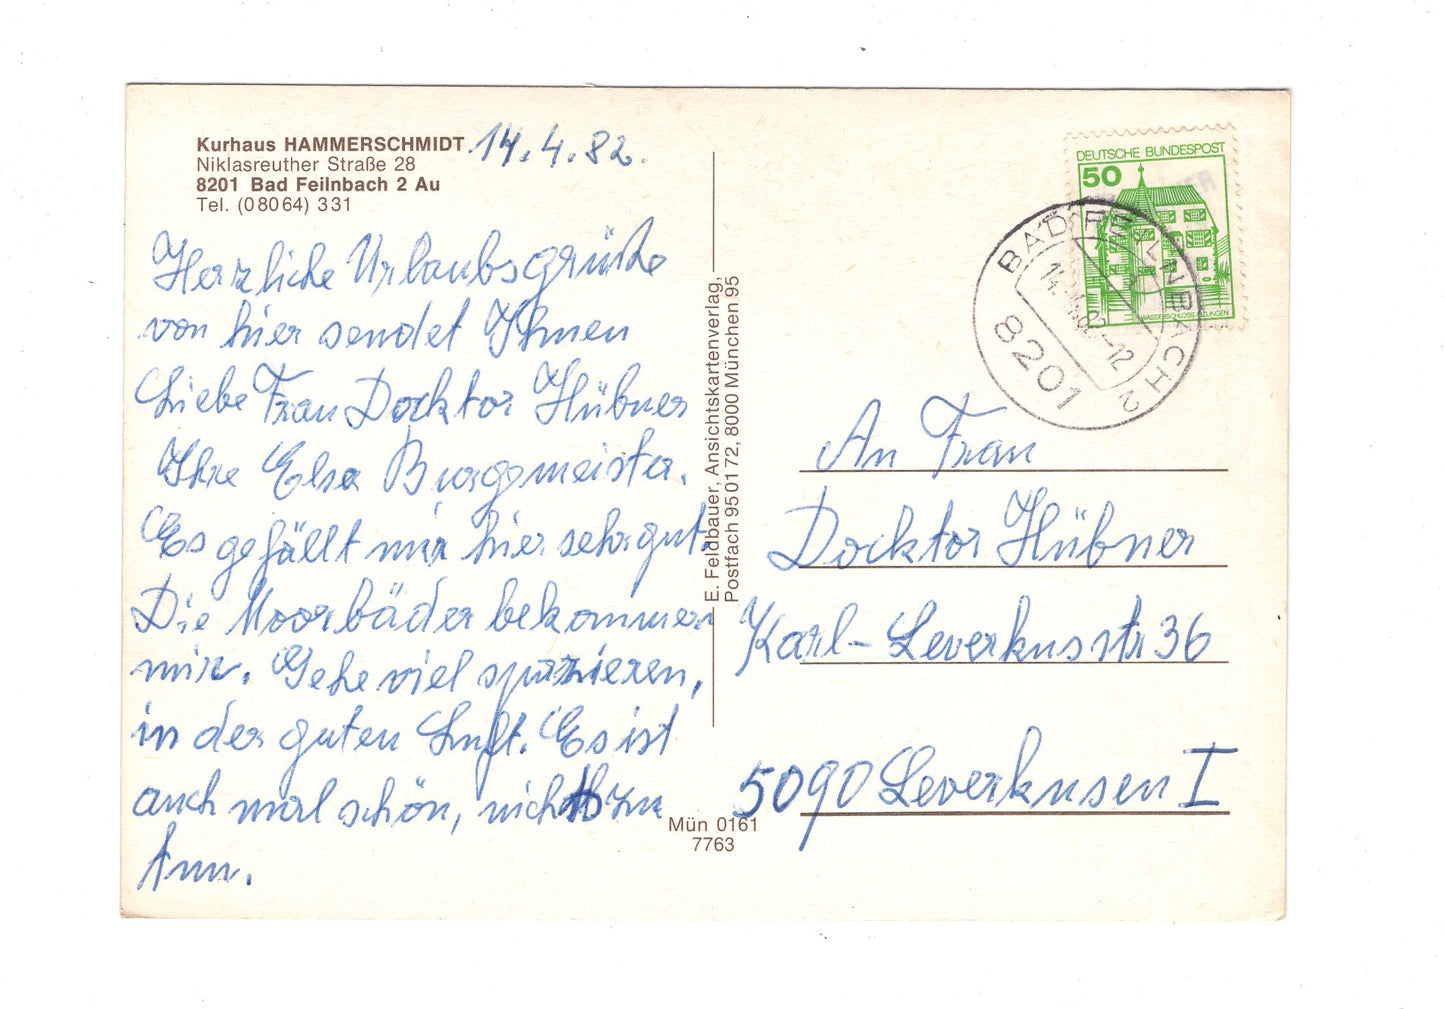 Kurhaus HAMMERSCHMIDT 14.4.82.
Niklasreuther Straße 28
8201 Bad Feilnbach 2 Au
Tel. (0 80 64) 3 31
Herzliche Urlaubsgrüße
von hier sendet Ihnen
Liebe Frau Docktor Hübner
Ihre Elsa Burgsmeister.
Es gefällt mir hier sehr gut.
Die Moorbäder bekommen
mir. Gehe viel spazieren,
in der guten Luft. Es ist
auch mal schön, nichts zu
tun.
E. Feldbauer, Ansichtskartenverlag,
Postfach 95 01 72, 8000 München 95
Mün 0161
7763
DEUTSCHE BUNDESPOST
50
WASSERSCHLOSS INZLINGEN
BAD FEILNBACH 2
14.-4.82-12
8201
An Frau
Docktor Hübner
Karl-Leverkusstr 36
5090 Leverkusen I